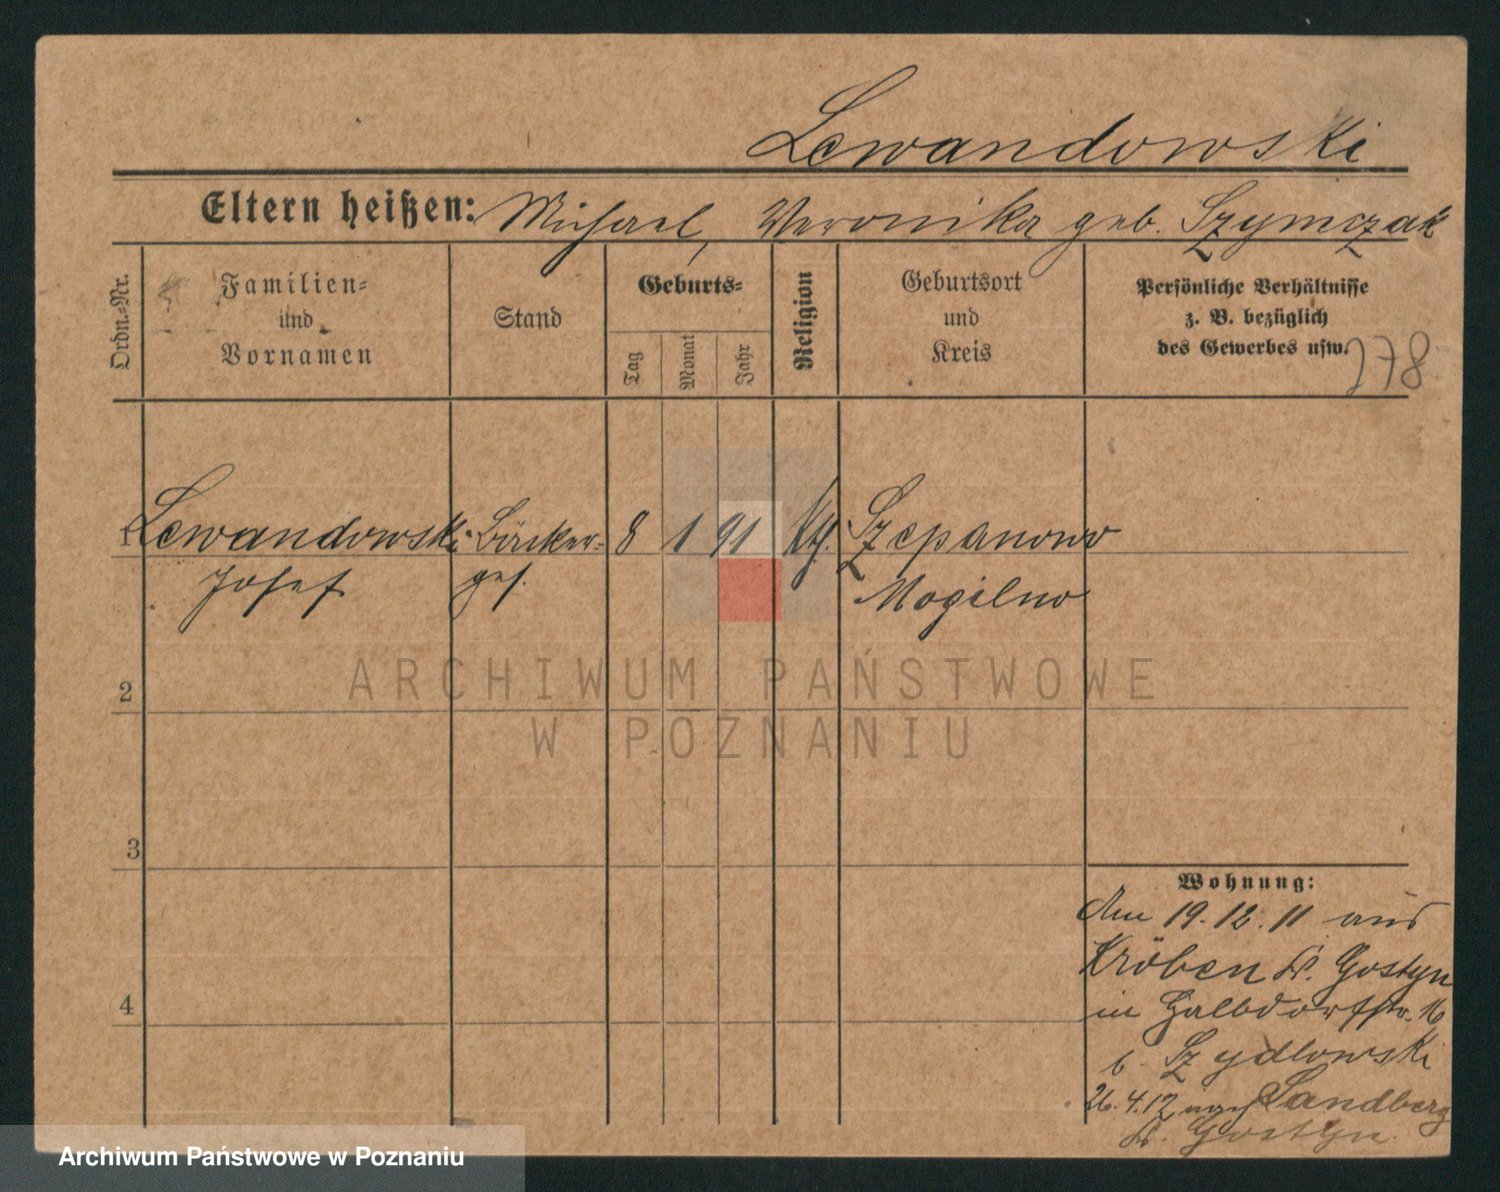 Lewandowski
Eltern heißen: Michael, Veronika geb. Szymczak
Ordn.-Nr.
Familien-
und
Vornamen
Stand
Geburts-
Tag
Monat
Jahr
Religion
Geburtsort
und
Kreis
Persönliche Verhältnisse
z. B. bezüglich
des Gewerbes usw.
178
1 Lewandowski Bäcker- 8 1 91 kth. Szepanowo
Josef ges. Mogilno
2
3
4
Wohnung:
Am 19.12.11 aus
Kröben Kr. Gostyn
in Halbdorfstr. 16
b. Szydlowski
26.4.12 nach Sandberg
Kr. Gostyn.
ARCHIWUM PAŃSTWOWE
W POZNANIU
Archiwum Państwowe w Poznaniu